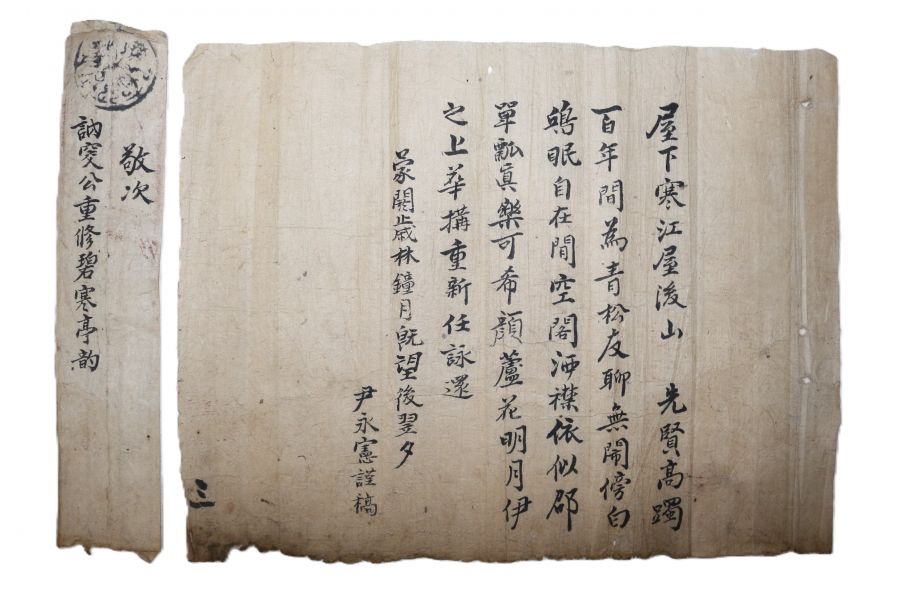 屋下寒江屋後山 先賢高躅
百年間為青松友聊無鬧傍白
鷗眠自在閒空閣洒襟依似邵
單瓢眞樂可希顔蘆花明月伊
之上華搆重新任詠還
蒙閼歲林鐘月旣望後翌夕
尹永憲謹稿
三
敬次
訥窔公重修碧寒亭韵